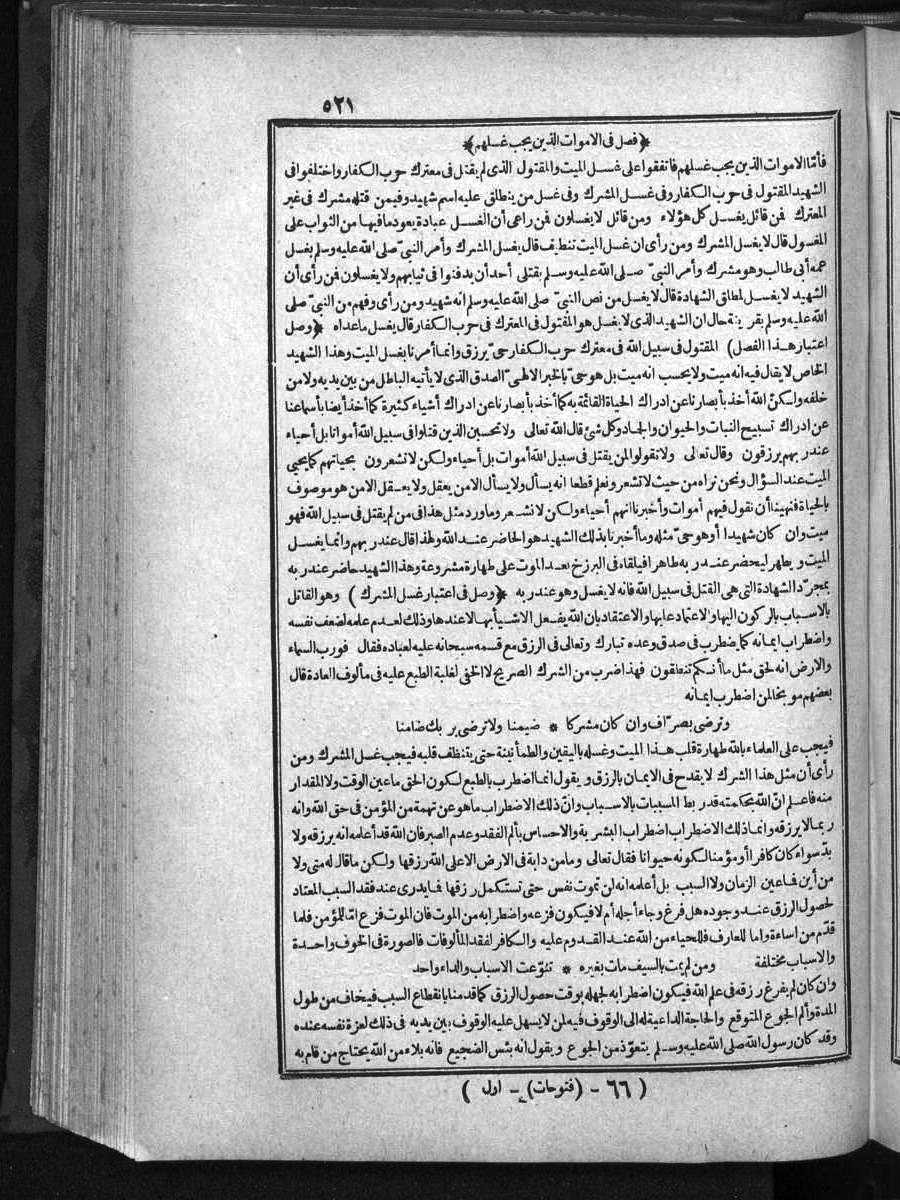 ٥٢١
﴿فصل فى الاموات الذين يجب غسلهم﴾
فأما الاموات الذين يجب غسلهم فاتفقوا على غسل الميت والمقتول الذى لم يقتل فى معترك حرب الكفار واختلفوا فى
الشهيد المقتول فى حرب الكفار وفى غسل المشرك وفى غسل من ينطلق عليه اسم شهيد وفيمن قتله مشرك فى غير
المعترك فمن قائل يغسل كل هؤلاء ومن قائل لا يغسلون فمن راعى أن الغسل عبادة يعود ما فيها من الثواب على
المغسول قال لا يغسل المشرك ومن رأى ان غسل الميت تنظيف قال بغسل المشرك وأمر النبىّ صلى الله عليه وسلم بغسل
عمه أبى طالب وهو مشرك وأمر النبىّ صلى الله عليه وسلم بقتلى أحد أن يدفنوا فى ثيابهم ولا يغسلون فمن رأى أن
الشهيد لا يغسل لمطلق الشهادة قال لا يغسل من نص النبىّ صلى الله عليه وسلم انه شهيد ومن رأى وفهم من النبىّ صلى
الله عليه وسلم بقرينة حال ان الشهيد الذى لا يغسل هو المقتول فى المعترك فى حرب الكفار قال يغسل ما عداه ﴿وصل
اعتبار هذا الفصل) المقتول فى سبيل الله فى معترك حرب الكفار حىّ يرزق وانما أمرنا بغسل الميت وهذا الشهيد
الخاص لا يقال فيه انه ميت ولا يحسب انه ميت بل هو حىّ بالخبر الالهىّ الصدق الذى لا يأتيه الباطل من بين يديه ولا من
خلفه ولكنّ الله أخذ بأبصارنا عن ادراك الحياة القائمة به كما أخذ بأبصارنا عن ادراك أشياء كثيرة كما أخذ أيضا بأسماعنا
عن ادراك تسبيح النبات والحيوان والجماد وكل شئ قال الله تعالى ولا تحسبن الذين قتلوا فى سبيل الله أمواتا بل أحياء
عند ربهم يرزقون وقال تعالى ولا تقولوا لمن يقتل فى سبيل الله أموات بل أحياء ولكن لا تشعرون بحياتهم كما يحيى
الميت عند السؤال ونحن نراه من حيث لا تشعر ونعلم قطعا انه يسأل ولا يسأل الا من يعقل ولا يعقل الا من هو موصوف
بالحياة فنهينا أن نقول فيهم أموات وأخبرنا انهم أحياء ولكن لا نشعر وما ورد مثل هذا فى من لم يقتل فى سبيل الله فهو
ميت وان كان شهيدا أو هو حىّ مثله وما أخبرنا بذلك الشهيد هو الحاضر عند الله ولهذا قال عند ربهم وانما يغسل
الميت و يطهر ليحضر عند ربه طاهرا فيلقاه فى البرزخ بعد الموت على طهارة مشروعة وهذا الشهيد حاضر عند ربه
بمجرّد الشهادة التى هى القتل فى سبيل الله فانه لا يغسل وهو عند ربه ﴿وصل فى اعتبار غسل المشرك ) وهو القائل
بالاسباب بالركون اليها والاعتماد عليها والاعتقاد بان الله يفعل الاشياء بها لا عندها وذلك لعدم علمه لضعف نفسه
واضطراب ايمانه كما يضطرب فى صدق وعده تبارك وتعالى فى الرزق مع قسمه سبحانه عليه لعباده فقال فورب السماء
والارض انه لحق مثل ما أنكم تنطقون فهذا ضرب من الشرك الصريح لا الخفى لغلبة الطبع عليه فى مألوف العادة قال
بعضهم مو بخا لمن اضطرب ايمانه
وترضى بصرّاف وان كان مشركا * ضمينا ولا ترضى بر بك ضامنا
فيجب على العلماء بالله طهارة قلب هذا الميت وغسله باليقين والطمأنينة حتى يتنظف قلبه فيجب غسل المشرك ومن
رأى أن مثل هذا الشرك لا يقدح فى الايمان بالرزق و يقول انما اضطرب بالطبع لكون الحق ما عين الوقت ولا المقدار
منه فاعلم انّ الله بحكمته قد ر بط المسببات بالاسباب وانّ ذلك الاضطراب ما هو عن تهمة من المؤمن فى حق الله وانه
ر بما لا يرزقه وانما ذلك الاضطراب اضطراب البشرية والاحساس بألم الفقد وعدم الصبر فان الله قد أعلمه انه يرزقه ولا
بدّ سواء كان كافرا أو مؤمنا لكونه حيوانا فقال تعالى وما من دابة فى الارض الا على الله رزقها ولكن ما قال له متى ولا
من أين فما عين الزمان ولا السبب بل أعلمه انه لن تموت نفس حتى تستكمل رزقها فما يدرى عند فقد السبب المعتاد
لحصول الرزق عند وجوده هل فرغ وجاء أجله أم لا فيكون فزعه واضطرابه من الموت فان الموت فزع اما للمؤمن فلما
قدّم من اساءة واما للعارف فللحياء من الله عند القدوم عليه والكافر لفقد المألوفات فالصورة فى الخوف واحدة
والاسباب مختلفة ومن لم يمت بالسيف مات بغيره * تنوّعت الاسباب والداء واحد
وان كان لم يفرغ رزقه فى علم الله فيكون اضطرابه لجهله بوقت حصول الرزق كما قدمنا بانقطاع السبب فيخاف من طول
المدة وألم الجوع المتوقع والحاجة الداعية له الى الوقوف فيه لمن لا يسهل عليه الوقوف بين يديه فى ذلك لعزة نفسه عنده
وقد كان رسول الله صلى الله عليه وسلم يتعوّذ من الجوع و يقول انه بئس الضجيع فانه بلاء من الله يحتاج من قام به
( ٦٦ - (فتوحات) - اول )